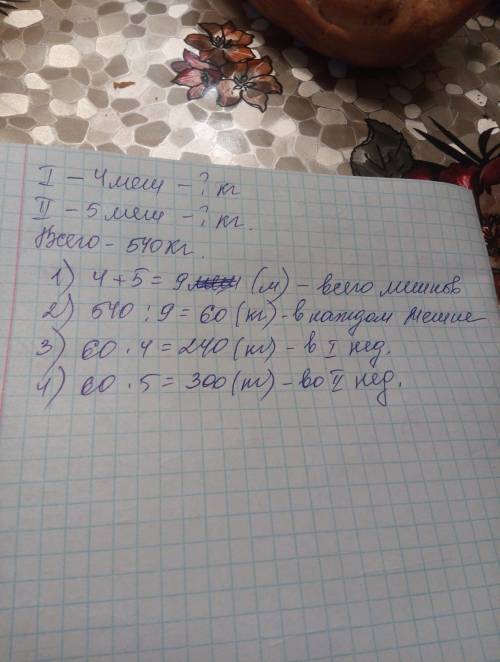 I – 4 меш – ? кг
II – 5 меш – ? кг.
Всего – 540 кг.
1) 4 + 5 = 9 (м) – всего мешков
2) 540 : 9 = 60 (кг) – в каждом мешке
3) 60 · 4 = 240 (кг) – в I нед.
4) 60 · 5 = 300 (кг) – во II нед.